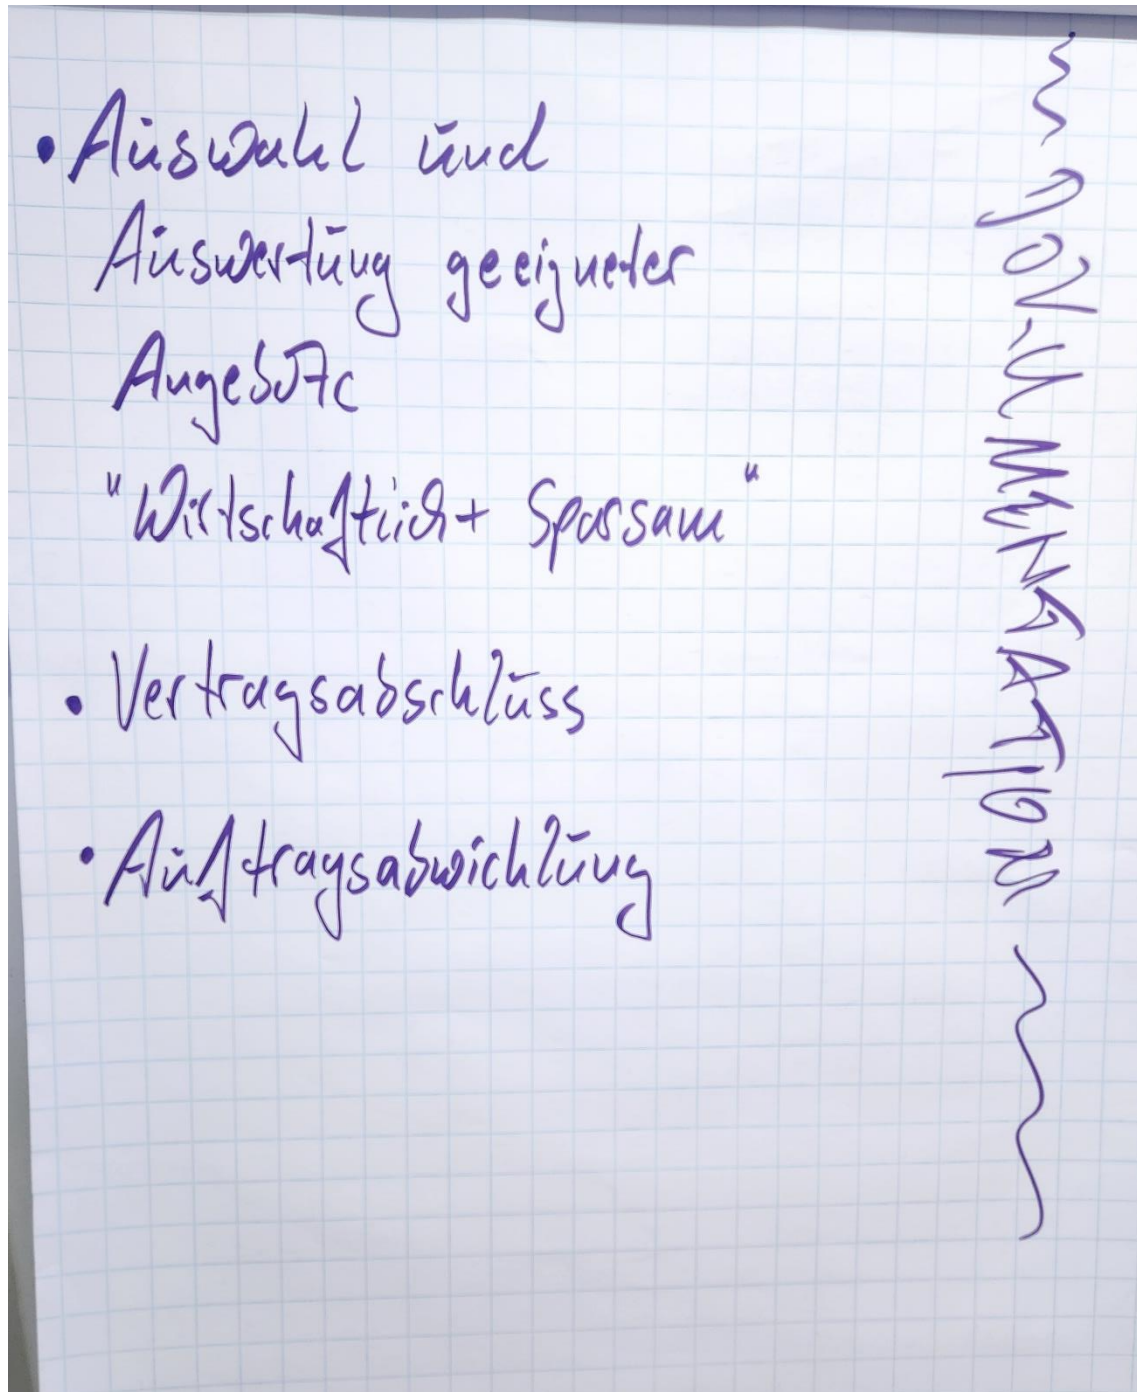 • Auswahl und
Auswertung geeigneter
Angebote
"Wirtschaftlich + Sparsam"
• Vertragsabschluss
• Auftragsabwicklung
DOKUMENTATION